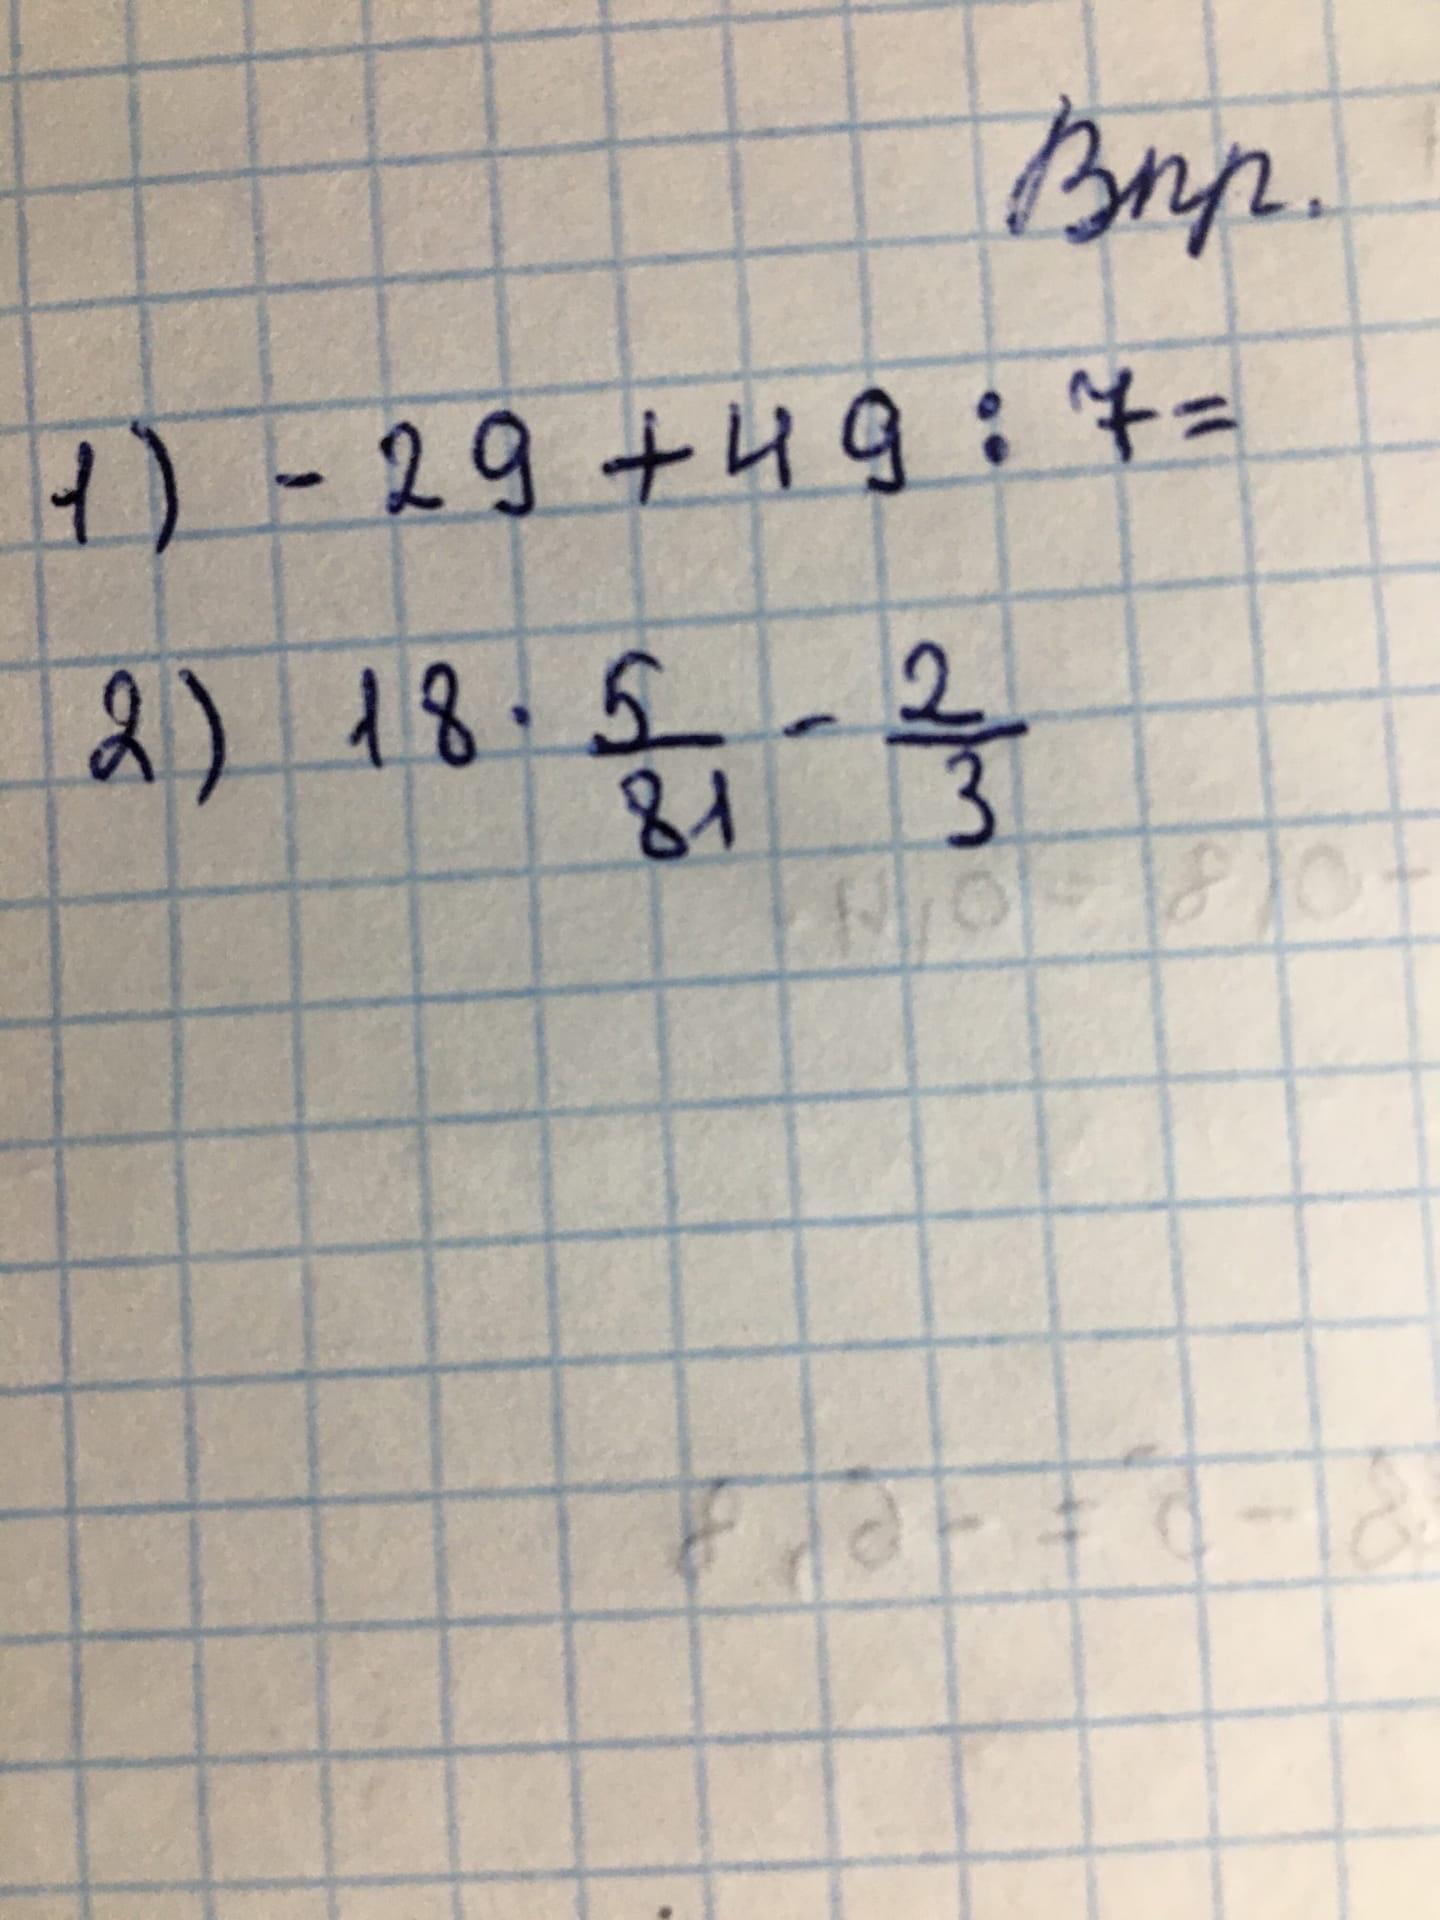 Впр.
1) - 29 + 49 : 7 =
2) 18 · 5/81 - 2/3